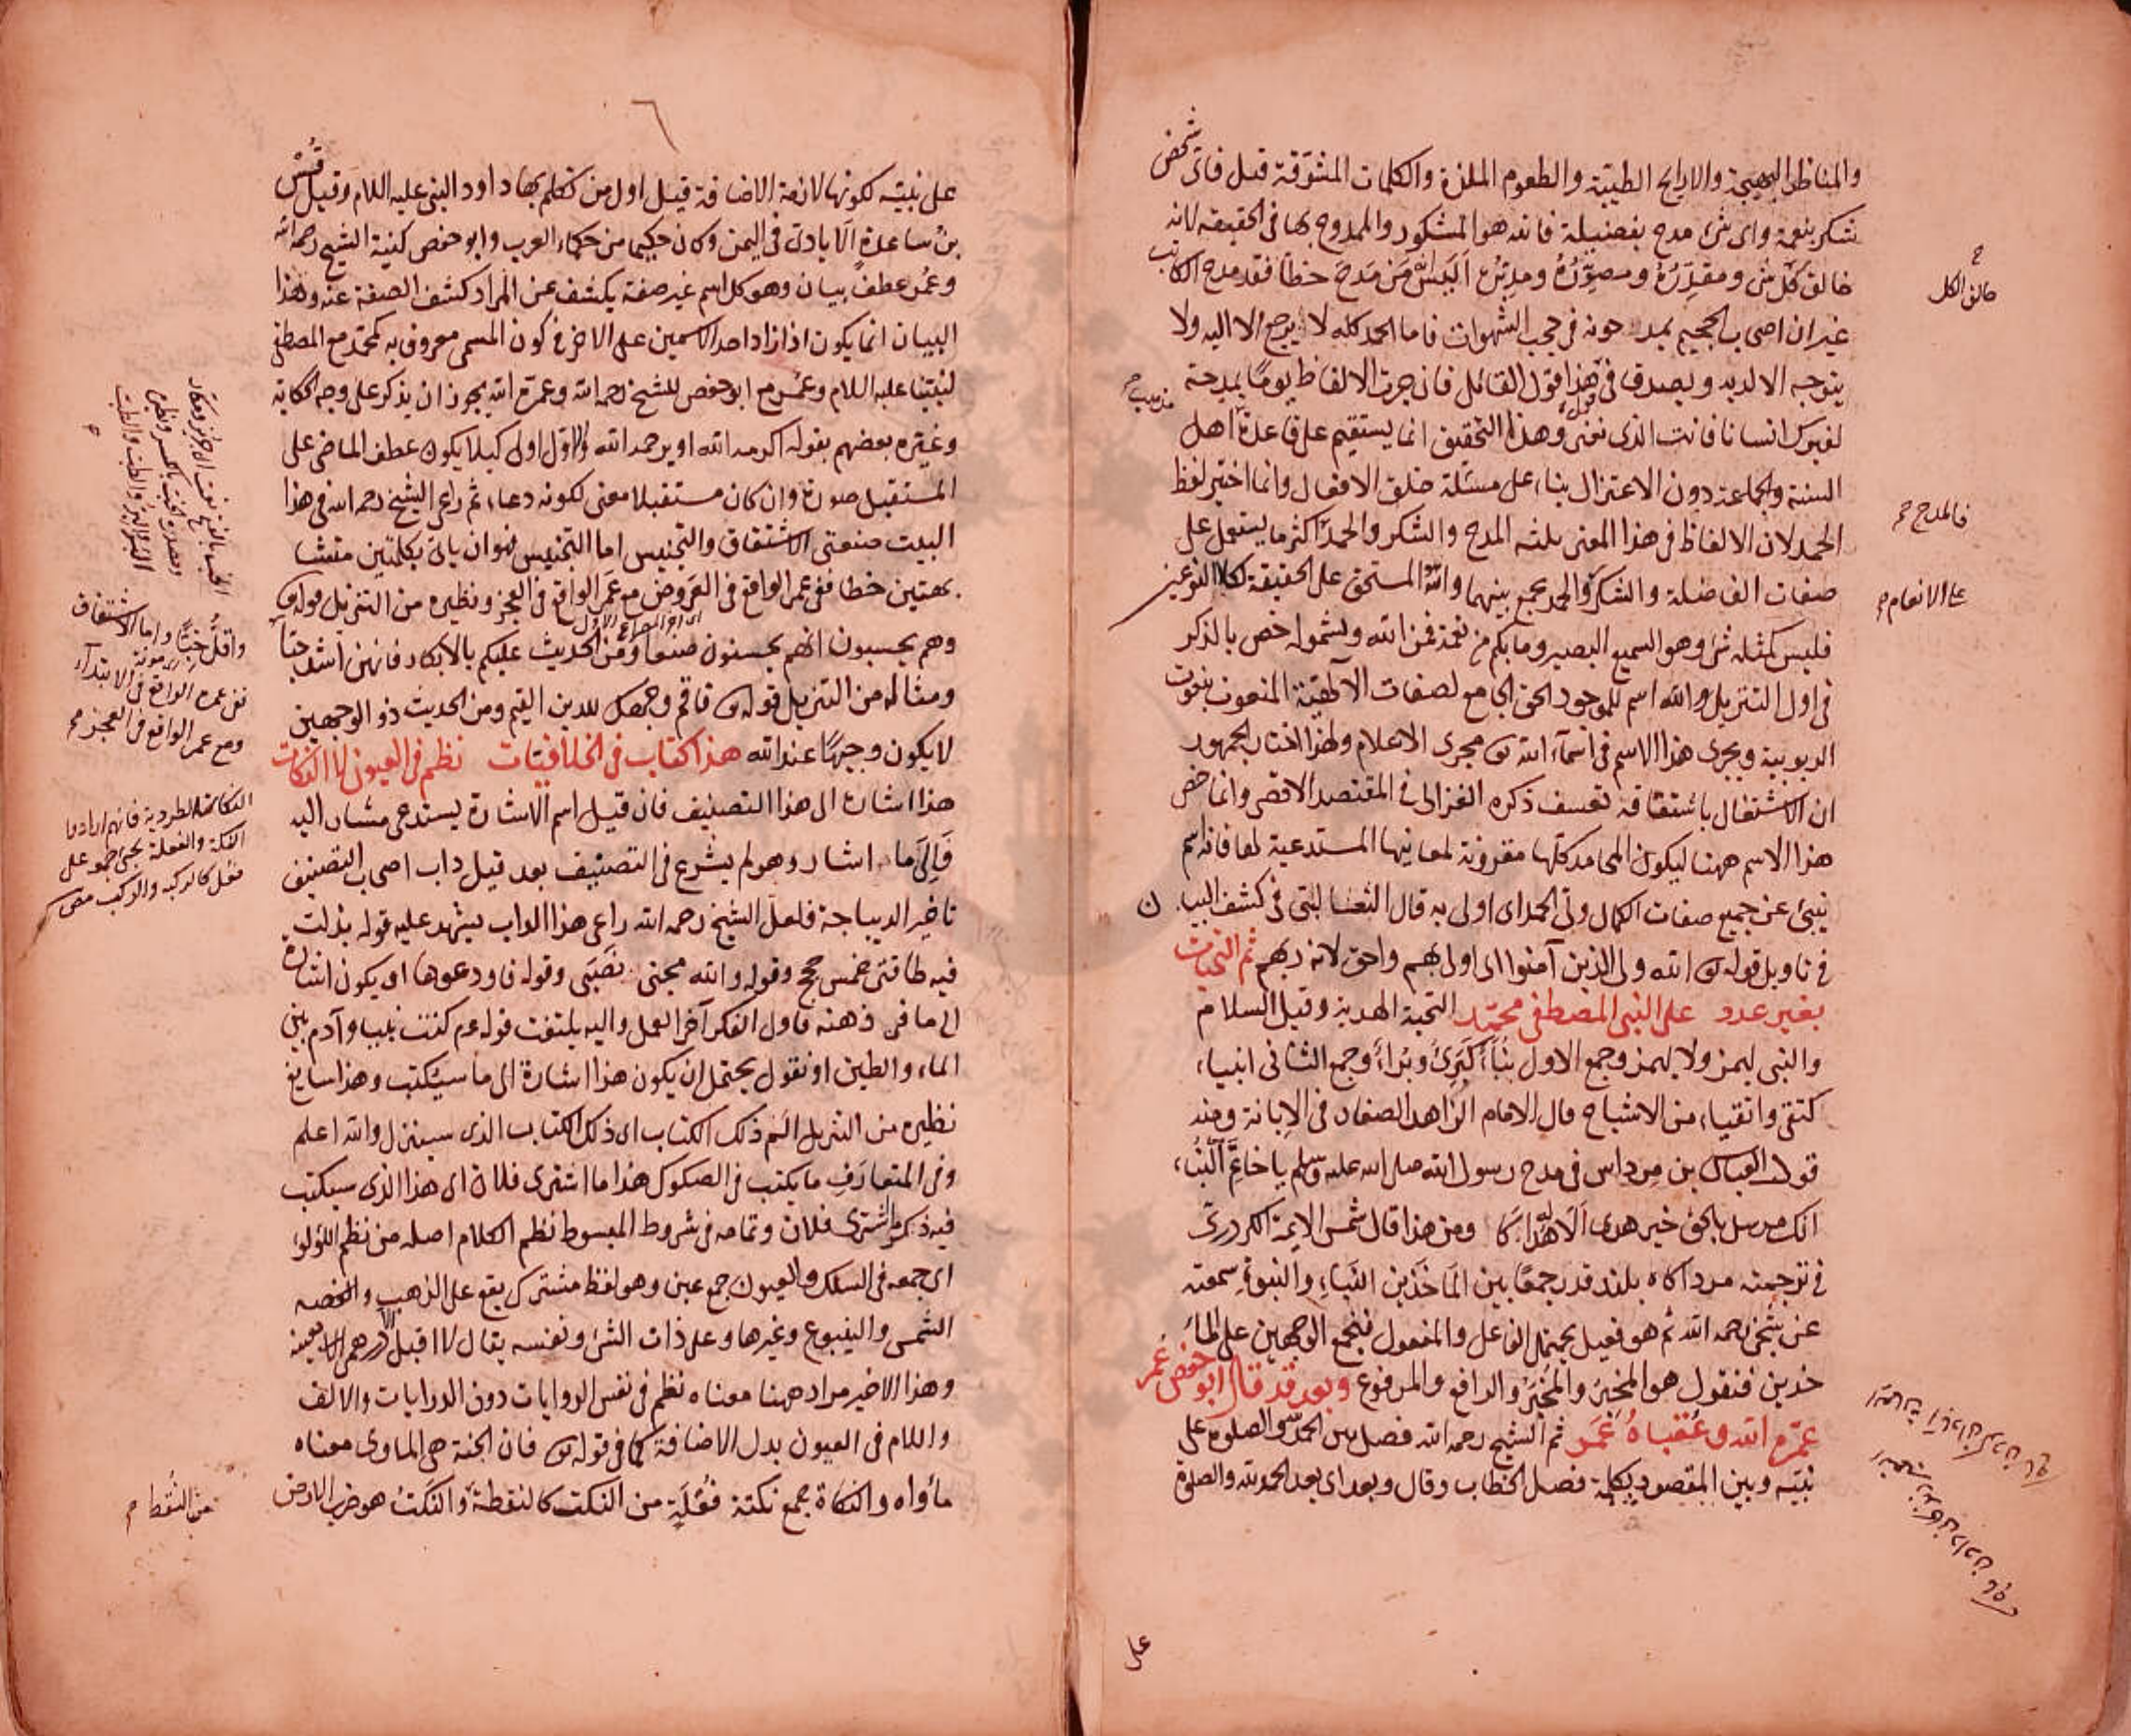 والمناظر البهيجة والاراييح الطيبة والطعوم الملذة والكلمات المشوقة قيل فاى شخص
شكر بنعمة واى شئ مدح بفضيلة فانه هو المشكور والممدوح بها فى الحقيقه لانه
خالق كل شئ ومقدره ومصوره ومدبره اليس من مدح خطا فقد مدح الكاتب
غير ان اصحاب الجحيم يمدحونه فى حجب الشهوات فاما الحمد كله لا يرجع الا اليه ولا
يتوجه الا لديه ويصدق فى هذا قول القائل فان جرت الالفاظ يوما بمدحة
لغيرك انسانا فانت الذى نعنى وهذا التحقيق انما يستقيم على قاعدة اهل
السنة والجماعة دون الاعتزال بناء على مسئلة خلق الافعال وانما اختير لفظ
الحمد لان الالفاظ فى هذا المعنى ثلثه المدح والشكر والحمد اكثر ما يستعمل على
صفات الفاضلة والشكر والحمد يجمع بينهما والله المستحق على الحقيقة لكلا النوعين
فليس كمثله شئ وهو السميع البصير وما بكم من نعمة فمن الله ولشموله خص بالذكر
فى اول التنزيل والله اسم للموجود الحق الجامع لصفات الآلهية المنعوت بنعوت
الربوبية ويجرى هذا الاسم فى اسماء الله تع مجرى الاعلام ولهذا اختار الجمهور
ان الاشتغال باشتقاقه تعسف ذكره الغزالى فى المقتصد الاقصى وانما خص
هذا الاسم ههنا ليكون المحامد كلها مقرونة لمعانيها المستدعية لها فانه اسم
ينبئ عن جميع صفات الكمال ولى الحمد اى اولى به قال الثعالبى فى كشف البيان
فى تاويل قوله تع الله ولى الذين آمنوا اى اولى بهم واحق لانه ربهم ثم التحيات
بغير عدد على النبى المصطفى محمد التحية الهدية وقيل السلام
والنبى يهمز ولا يهمز وجمع الاول نبآء كبرئ وبرآء وجمع الثانى انبياء
كتقى واتقياء من الاشباح قال الامام الزاهد الصفار فى الابانة ومنه
قول العباس بن مرداس فى مدح رسول الله صلى الله عليه وسلم يا خاتم النبآء
انك مرسل بالحق خير هدى الاله هداكا ومن هذا قال شمس الايمة الكردرى
فى ترجمته مرد آكاه بلند قدر جمعا بين الماخذين النباء والنبوة سمعته
عن شيخى رحمه الله ثم هو فعيل يحتمل الفاعل والمفعول فنجمع الوجهين على الما
خذين فنقول هو المخبِر والمخبَر والرافع والمرفوع وبعد قد قال ابو حفص عمر
عمره الله وعقباه عمر ثم الشيخ رحمه الله فصل بين الحمد لله والصلوة على
نبيه وبين المقصود بكلمة فصل الخطاب وقال وبعد اى بعد الحمد لله والصلوة
على
خالق الكل
فالمدح
على الانعام
على نبيه لكونها لازمة الاضافة قيل اول من تكلم بها داود النبى عليه السلام وقيل قس
بن ساعدة الايادى فى اليمن وكان حكيما من حكماء العرب وابو حفص كنية الشيخ رحمه الله
وعمر عطف بيان وهو كل اسم غير صفة يكشف عن المراد كشف الصفة عنه وهذا
البيان انما يكون اذا زاد احد الاسمين على الاخر فى كون المسمى معروف به كمحمد مع المصطفى
لنبينا عليه السلام وعمر مع ابو حفص للشيخ رحمه الله وعمره الله يجوز ان يذكر على وجه الحكاية
وغيره بعضهم بقوله اكرمه الله او يرحمه الله والاول اولى كيلا يكون عطف الماضى على
المستقبل صورة وان كان مستقبلا معنى لكونه دعاء ثم راعى الشيخ رحمه الله فى هذا
البيت صنعتى الاشتقاق والتجنيس اما التجنيس فهو ان ياتى بكلمتين متشا
بهتين خطا ففى عمر الواقع فى العروض مع عمر الواقع فى العجز ونظيره من التنزيل قوله تع
وهم يحسبون انهم يحسنون صنعا ومن الحديث عليكم بالابكار فانهن اشد حبا
ومثاله من التنزيل قوله تع فاقم وجهك للدين القيم ومن الحديث ذو الوجهين
لا يكون وجيها عند الله هذا كتاب فى الخلافيات نظم فى العيون لا النكات
هذا اشارة الى هذا التصنيف فان قيل اسم الاشارة يستدعى مشار اليه
فالى ما اشار وهو لم يشرع فى التصنيف بعد قيل داب اصحاب التصنيف
تاخير الديباجة فلعل الشيخ رحمه الله راعى هذا الداب يشهد عليه قوله بذلت
فيه طاقتى خمس حجج وقوله والله مجنى نصبى وقوله فاودعوها او يكون اشارة
الى ما فى ذهنه فاول الفكر آخر العمل واليه يلتفت قوله عم كنت نبيا وآدم بين
الماء والطين او نقول يحتمل ان يكون هذا اشارة الى ما سيكتب وهذا سايغ
نظيره من التنزيل الم ذلك الكتاب اى ذلك الكتاب الذى سينزل والله اعلم
وفى المتعارف ما يكتب فى الصكوك هذا ما اشترى فلان اى هذا الذى سيكتب
فيه ذكر ما اشترى فلان وتمامه فى شروط المبسوط نظم الكلام اصله من نظم اللؤلؤ
اى جمعه فى السلك والعيون جمع عين وهو لفظ مشترك يقع على الذهب والفضه
الشمس والينبوع وغيرها وعلى ذات الشئ ونفسه يقال لا اقبل الا درهمى بعينه
وهذا الاخير مراد ههنا معناه نظم فى نفس الروايات دون الدرايات والالف
واللام فى العيون بدل الاضافة كما فى قوله تع فان الجنة هى الماوى معناه
مأواه والنكاة جمع نكتة فعلة من النكت كالنقطة والنكت هو ضرب الارض
واقل خبا واما الاشتقاق
ففى عمره الواقع فى الابتداء
ومع عمر الواقع فى العجز
من النقط